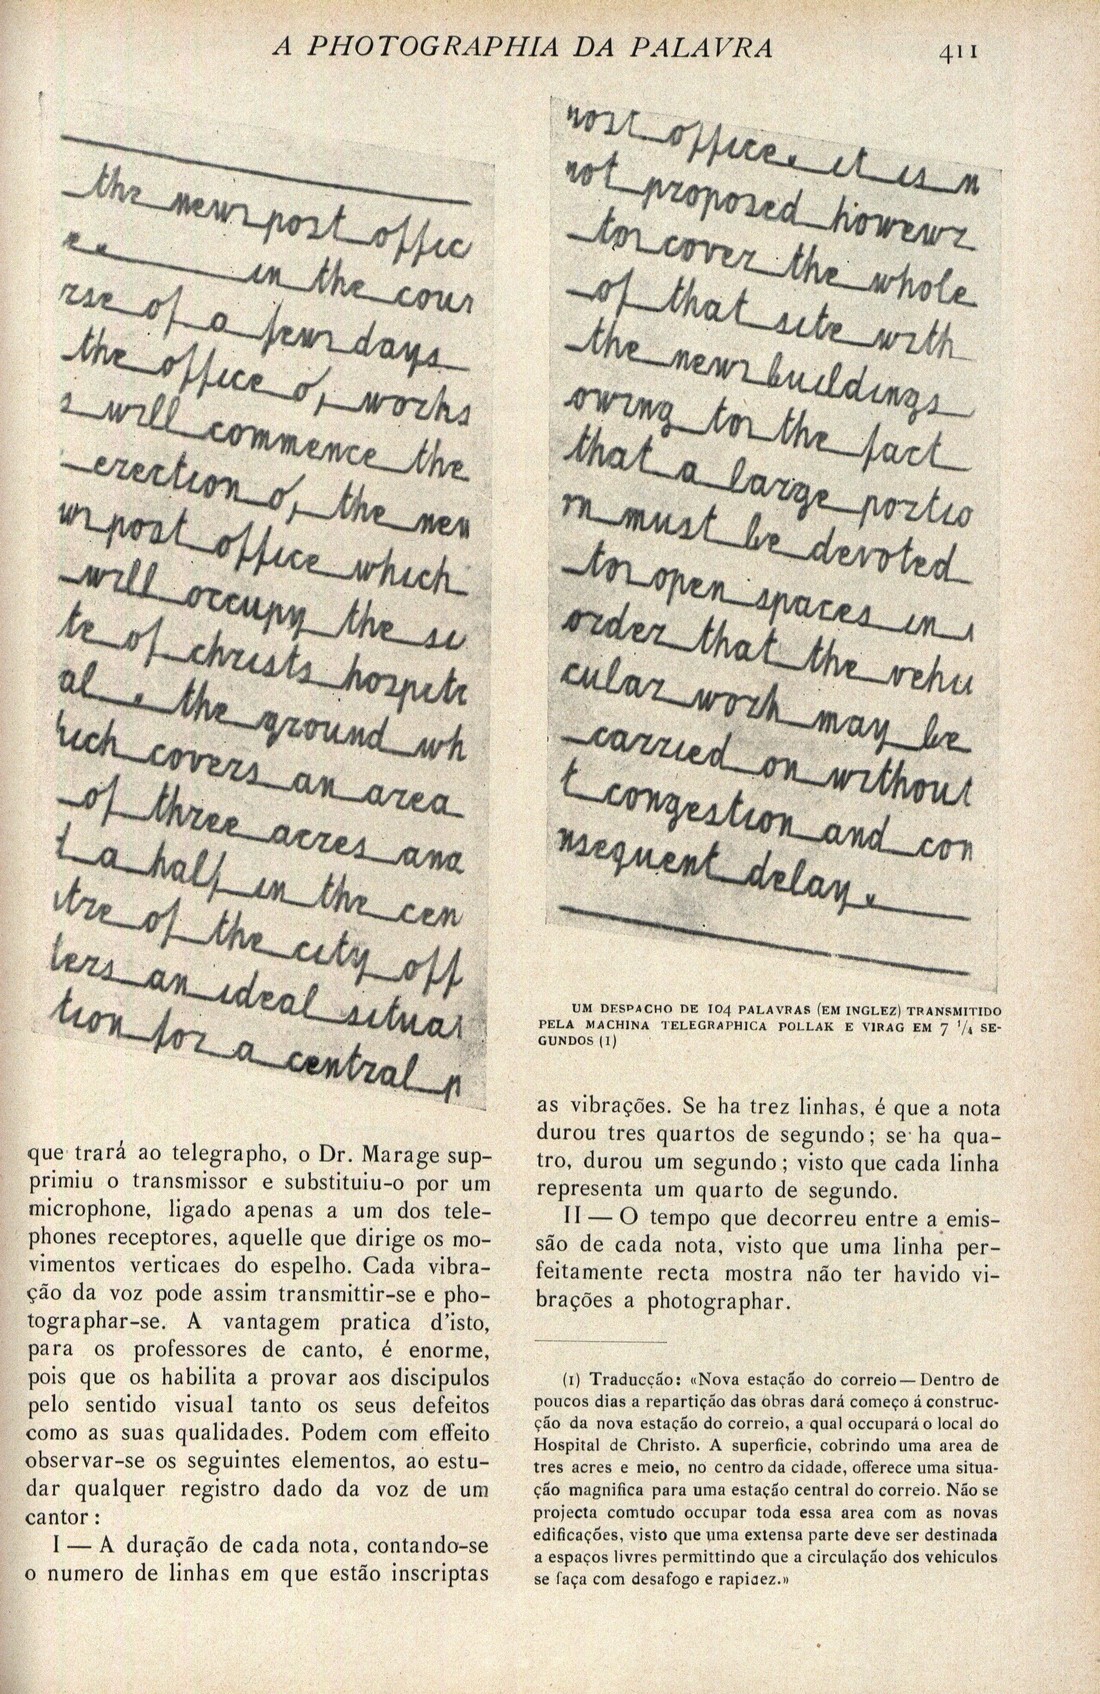 A PHOTOGRAPHIA DA PALAVRA
411
the new post offic
ce. in the cour
rse of a few days
the office of works
s will commence the
erection of the new
w post office which
will occupy the si
te of christs hospita
al. the ground wh
hich covers an area
of three acres and
d a half in the cen
ntre of the city off
fers an ideal situat
tion for a central p
post office. it is n
not proposed however
to cover the whole
of that site with
the new buildings
owing to the fact
that a large portio
on must be devoted
to open spaces in
order that the vehi
cular work may be
carried on without
t congestion and con
nsequent delay.
UM DESPACHO DE 104 PALAVRAS (EM INGLEZ) TRANSMITIDO
PELA MACHINA TELEGRAPHICA POLLAK E VIRAG EM 7 1/4 SE-
GUNDOS (1)
que trará ao telegrapho, o Dr. Marage sup-
primiu o transmissor e substituiu-o por um
microphone, ligado apenas a um dos tele-
phones receptores, aquelle que dirige os mo-
vimentos verticaes do espelho. Cada vibra-
ção da voz pode assim transmittir-se e pho-
tographar-se. A vantagem pratica d'isto,
para os professores de canto, é enorme,
pois que os habilita a provar aos discipulos
pelo sentido visual tanto os seus defeitos
como as suas qualidades. Podem com effeito
observar-se os seguintes elementos, ao estu-
dar qualquer registro dado da voz de um
cantor:
I — A duração de cada nota, contando-se
o numero de linhas em que estão inscriptas
as vibrações. Se ha trez linhas, é que a nota
durou tres quartos de segundo; se ha qua-
tro, durou um segundo; visto que cada linha
representa um quarto de segundo.
II — O tempo que decorreu entre a emis-
são de cada nota, visto que uma linha per-
feitamente recta mostra não ter havido vi-
brações a photographar.
(1) Traducção: «Nova estação do correio — Dentro de
poucos dias a repartição das obras dará começo á construc-
ção da nova estação do correio, a qual occupará o local do
Hospital de Christo. A superficie, cobrindo uma area de
tres acres e meio, no centro da cidade, offerece uma situa-
ção magnifica para uma estação central do correio. Não se
projecta comtudo occupar toda essa area com as novas
edificações, visto que uma extensa parte deve ser destinada
a espaços livres permittindo que a circulação dos vehiculos
se faça com desafogo e rapidez.»